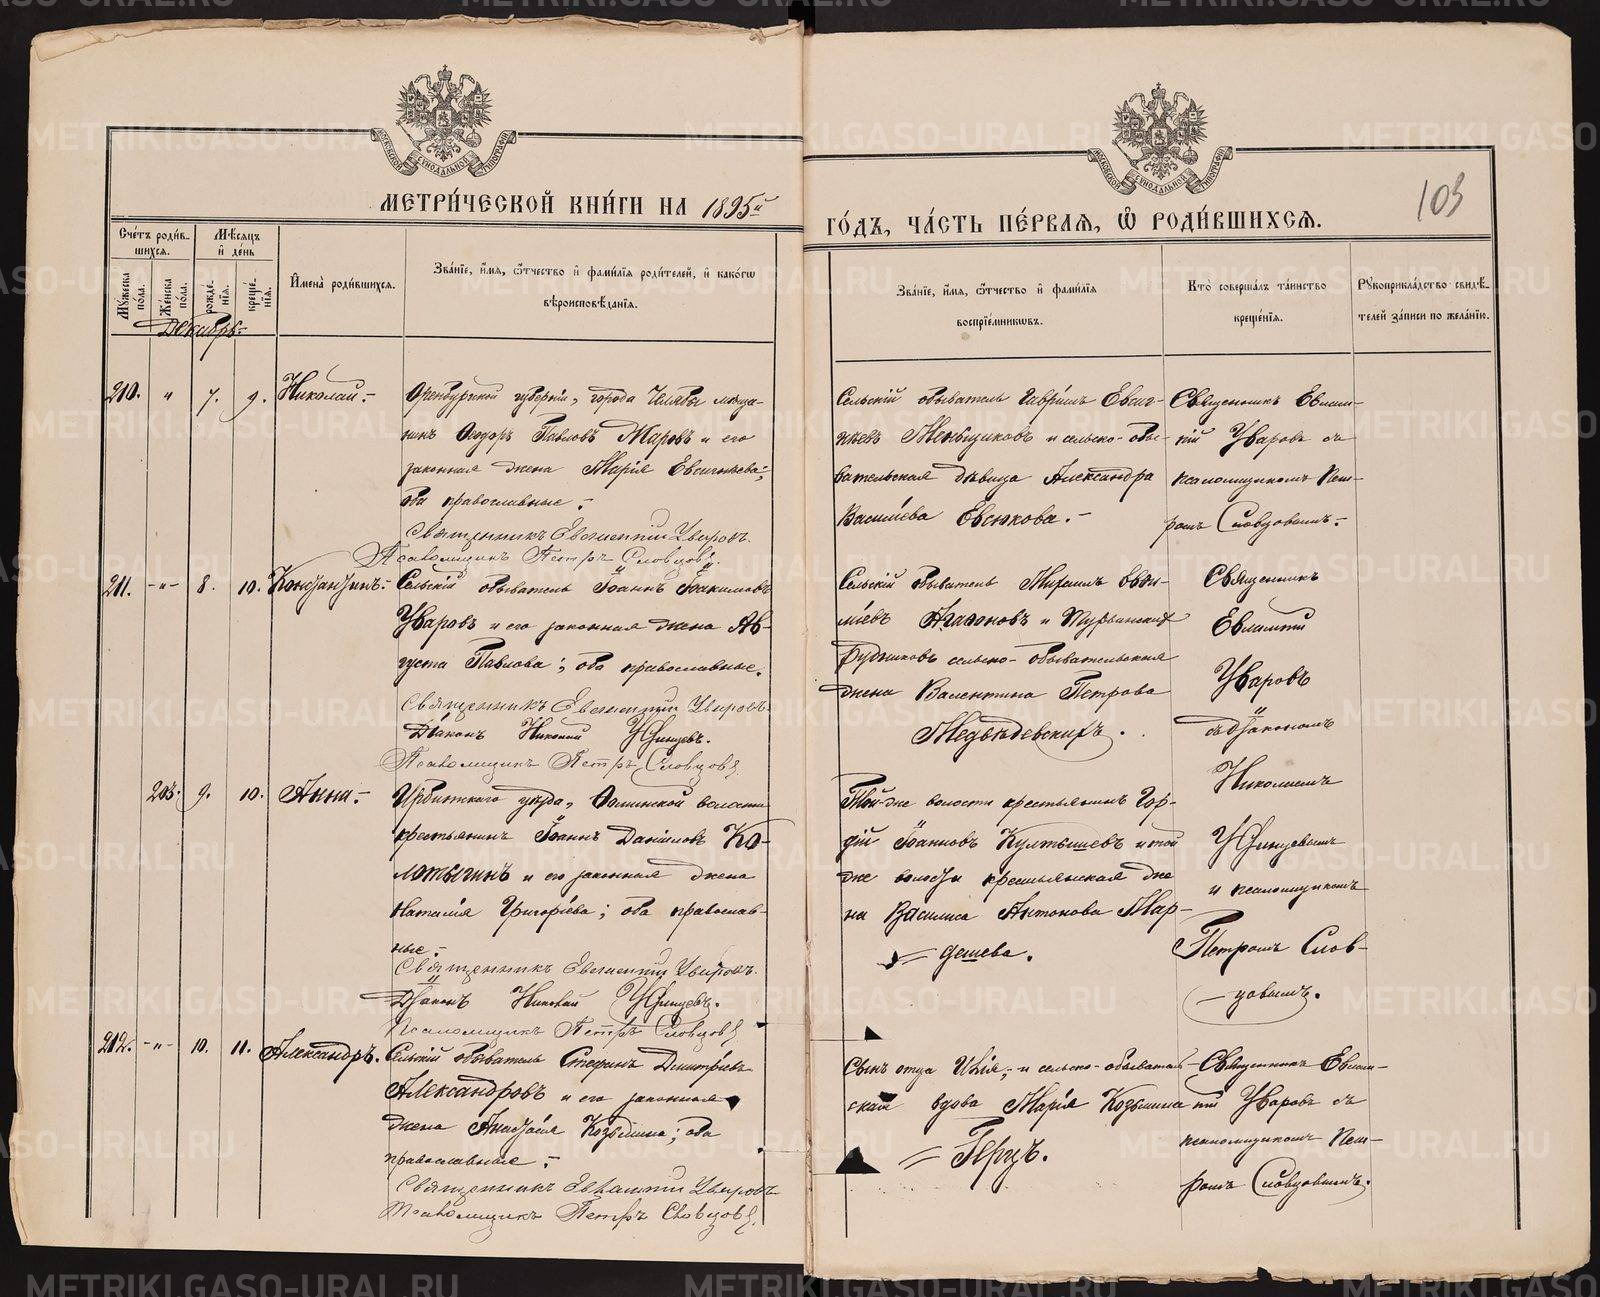 МЕТРИ́ЧЕСКОЙ КНИ́ГИ НА 1895й
ГО́ДЪ, ЧА́СТЬ ПЕ́РВАЯ, Ѿ РОДИ́ВШИХСЯ.
103
Сче́тъ роди́в-
шихся.
Мѣ́сяцъ
и́ де́нь
Му́жеска по́ла.
Же́нска по́ла.
рожде́-
нїя.
креще́-
нїя.
И҆мена̀ роди́вшихся.
Зва́нїе, и҆́мя, ѻ҆́тчество и҆ фами́лїя роди́телей, и҆ како́гѡ
вѣроисповѣ́данїя.
Зва́нїе, и҆́мя, ѻ҆́тчество и҆ фами́лїя
воспрїе́мникѡвъ.
Кто̀ соверша́лъ та́инство
креще́нїя.
Рꙋкоприкла́дство свидѣ́-
телей за́писи по жела́нїю.
Декабрь.-
210. " 7. 9. Николай.-
Оренбургской губерніи, города Челябы меща-
нинъ Ѳеодоръ Павловъ Маровъ и его
законная жена Марія Евсигніева;
оба православные.-
Священникъ Евлампій Уваровъ.
Псаломщикъ Петръ Словцовъ.
Сельскій обыватель Гавріилъ Евсиг-
ніевъ Меньщиковъ и сельско-обы-
вательская дѣвица Александра
Васильева Евсюкова.-
Священникъ Евлам-
пій Уваровъ съ
псаломщикомъ Пет-
ромъ Словцовымъ.-
211. -"- 8. 10. Константинъ.-
Сельскій обыватель Іоаннъ Іоакимовъ
Уваровъ и его законная жена Ав-
густа Павлова; оба православные.
Священникъ Евлампій Уваровъ.
Діаконъ Николай
Псаломщикъ Петръ Словцовъ.
Сельскій обыватель Михаилъ
Агаѳоновъ и Турьинскихъ
Рудниковъ сельско-обывательская
жена Валентина Петрова
Медвѣдевскихъ.
Священникъ
Евлампій
Уваровъ
съ діакономъ
Николаемъ
и псаломщикомъ
Петромъ Слов-
цовымъ.
203. 9. 10. Анна.-
Ирбитскаго уѣзда, волости
крестьянинъ Іоаннъ Даніиловъ Ко-
лотыгинъ и его законная жена
Наталія Григорьева; оба православ-
ные.-
Священникъ Евлампій Уваровъ.
Діаконъ Николай
Псаломщикъ Петръ Словцовъ
Той-же волости крестьянинъ Гор-
дій Іоанновъ Култышевъ и той
же волости крестьянская же-
на Василиса Антонова Мар-
= дешева.
212. -"- 10. 11. Александръ.
Сельскій обыватель Стефанъ Димитріевъ
Александровъ и его законная
жена Анастасія Козьмина; оба
православные.-
Священникъ Евлампій Уваровъ
Псаломщикъ Петръ Словцовъ.
Сынъ отца Илія; и сельско-обыватель-
ская вдова Марія Козьмина
= Герцъ.
Священникъ Евлам-
пій Уваровъ съ
псаломщикомъ Пет-
ромъ Словцовымъ.
METRIKI.GASO-URAL.RU